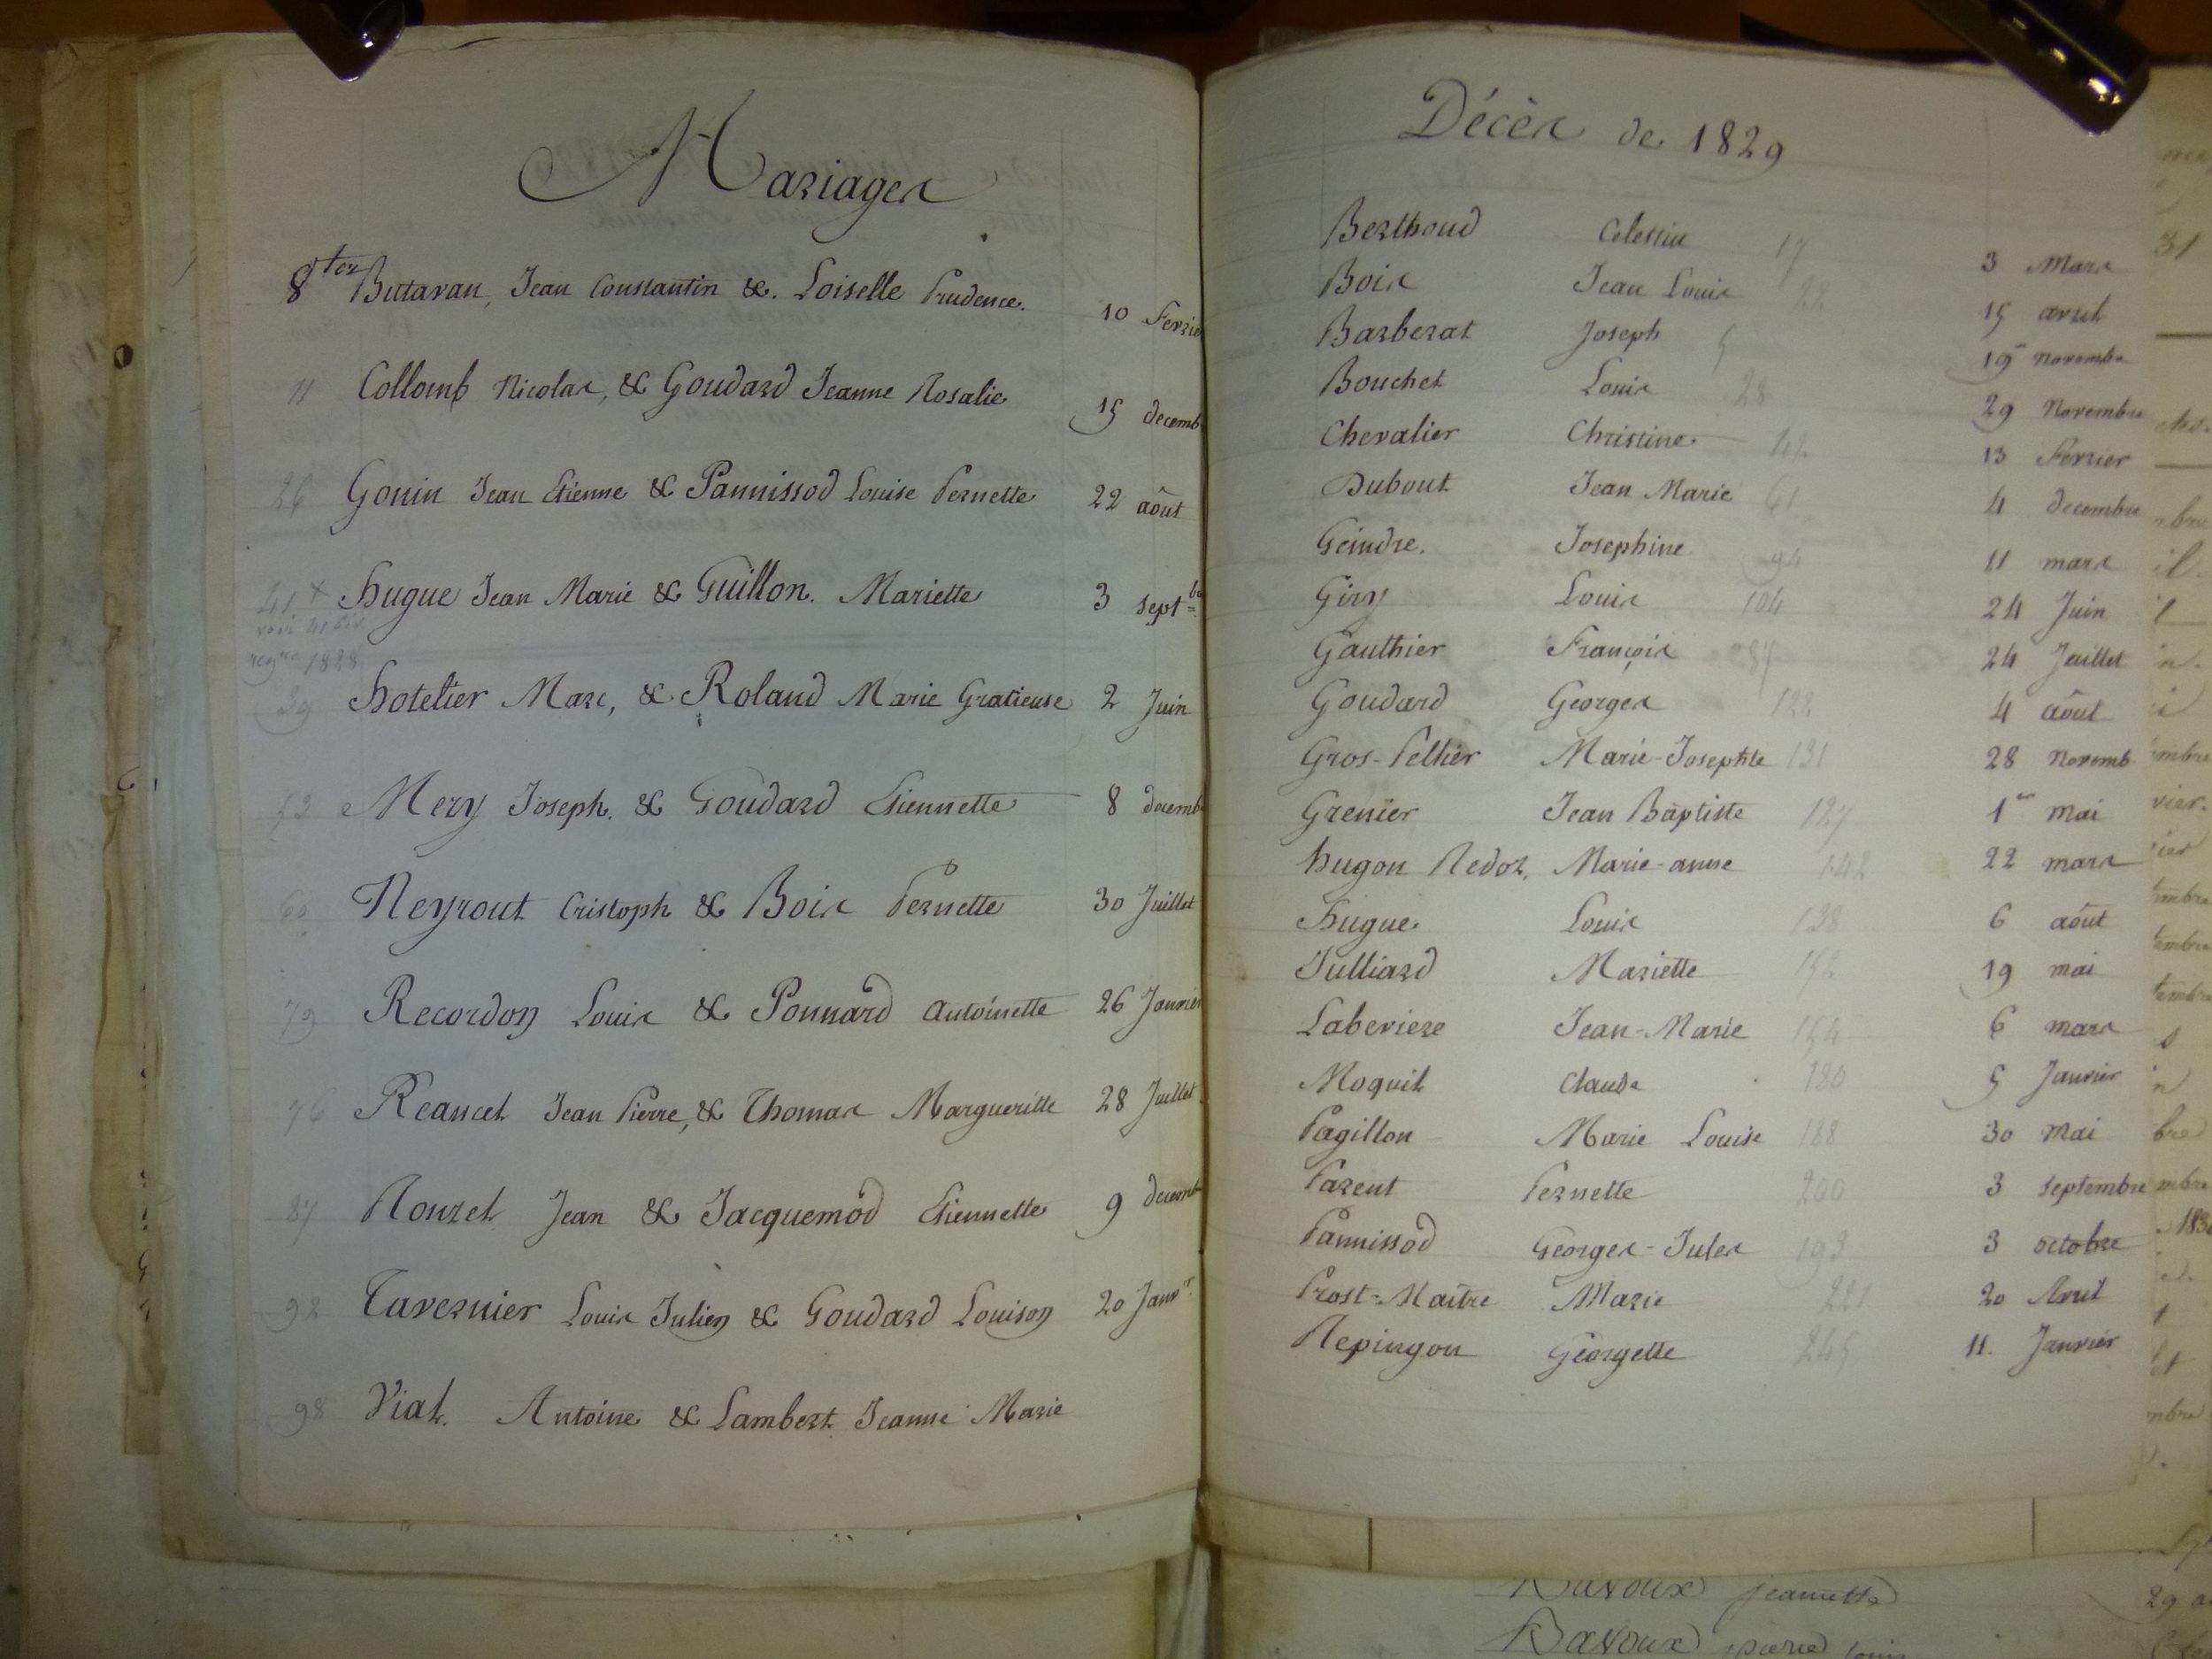 Mariages
8 ter Butavan, Jean Constantin &. Loiselle Prudence. 10 Fevrie
11 Collomb Nicolas, & Goudard Jeanne Rosalie 15 decemb
26 Gonin Jean Etienne & Pannissod Louise Pernette 22 aôut
41 + Hugue Jean Marie & Guillon. Mariette 3 sept bre
1828
39 Hotelier Marc, & Roland Marie Gratieuse 2 Juin
53 Mery Joseph. & Goudard Etiennette 8 decemb
60 Neyrout Cristoph & Bois Pernette 30 Juillet
79 Recordon Louis & Ponnard Antoinette 26 Janvier
76 Reancet Jean Pierre, & Thomas Margueritte 28 Juillet
87 Rouzet Jean & Jacquemod Etiennette 9 decemb
92 Tavernier Louis Julien & Goudard Louison 20 Janvr.
98 Viat. Antoine & Lambert Jeanne Marie
Décès de 1829
Berthoud Celestin 17 3 Mars
Bois Jean Louis 22 15 avril
Barberat Joseph 5 19 novembre
Bouchet Louis 28 29 Novembre
Chevalier Christine 13 Fevrier
Dubout Jean Marie 61 4 decembre
Geindre. Josephine 94 11 mars
Giry Louis 104 24 Juin
Gauthier François 87 24 Juillet
Goudard Georges 122 4 aôut
Gros-Pellier Marie-Josephte 131 28 Novemb
Grenier Jean Baptiste 127 1er mai
Hugon Redor, Marie-anne 142 22 mars
Hugue. Louis 138 6 aôut
Julliard Mariette 152 19 mai
Laberiere Jean-Marie 154 6 mars
Moquit Claude 180 5 Janvier
Pagillon Marie Louise 188 30 Mai
Parent Pernette 200 3 septembre
Pannissod Georges-Jules 193 3 octobre
Prost-Maitre Marie 221 20 Avril
Repingon Georgette 245 11. Janvier
Bavoux jeannette 29
Bavoux pierre louis